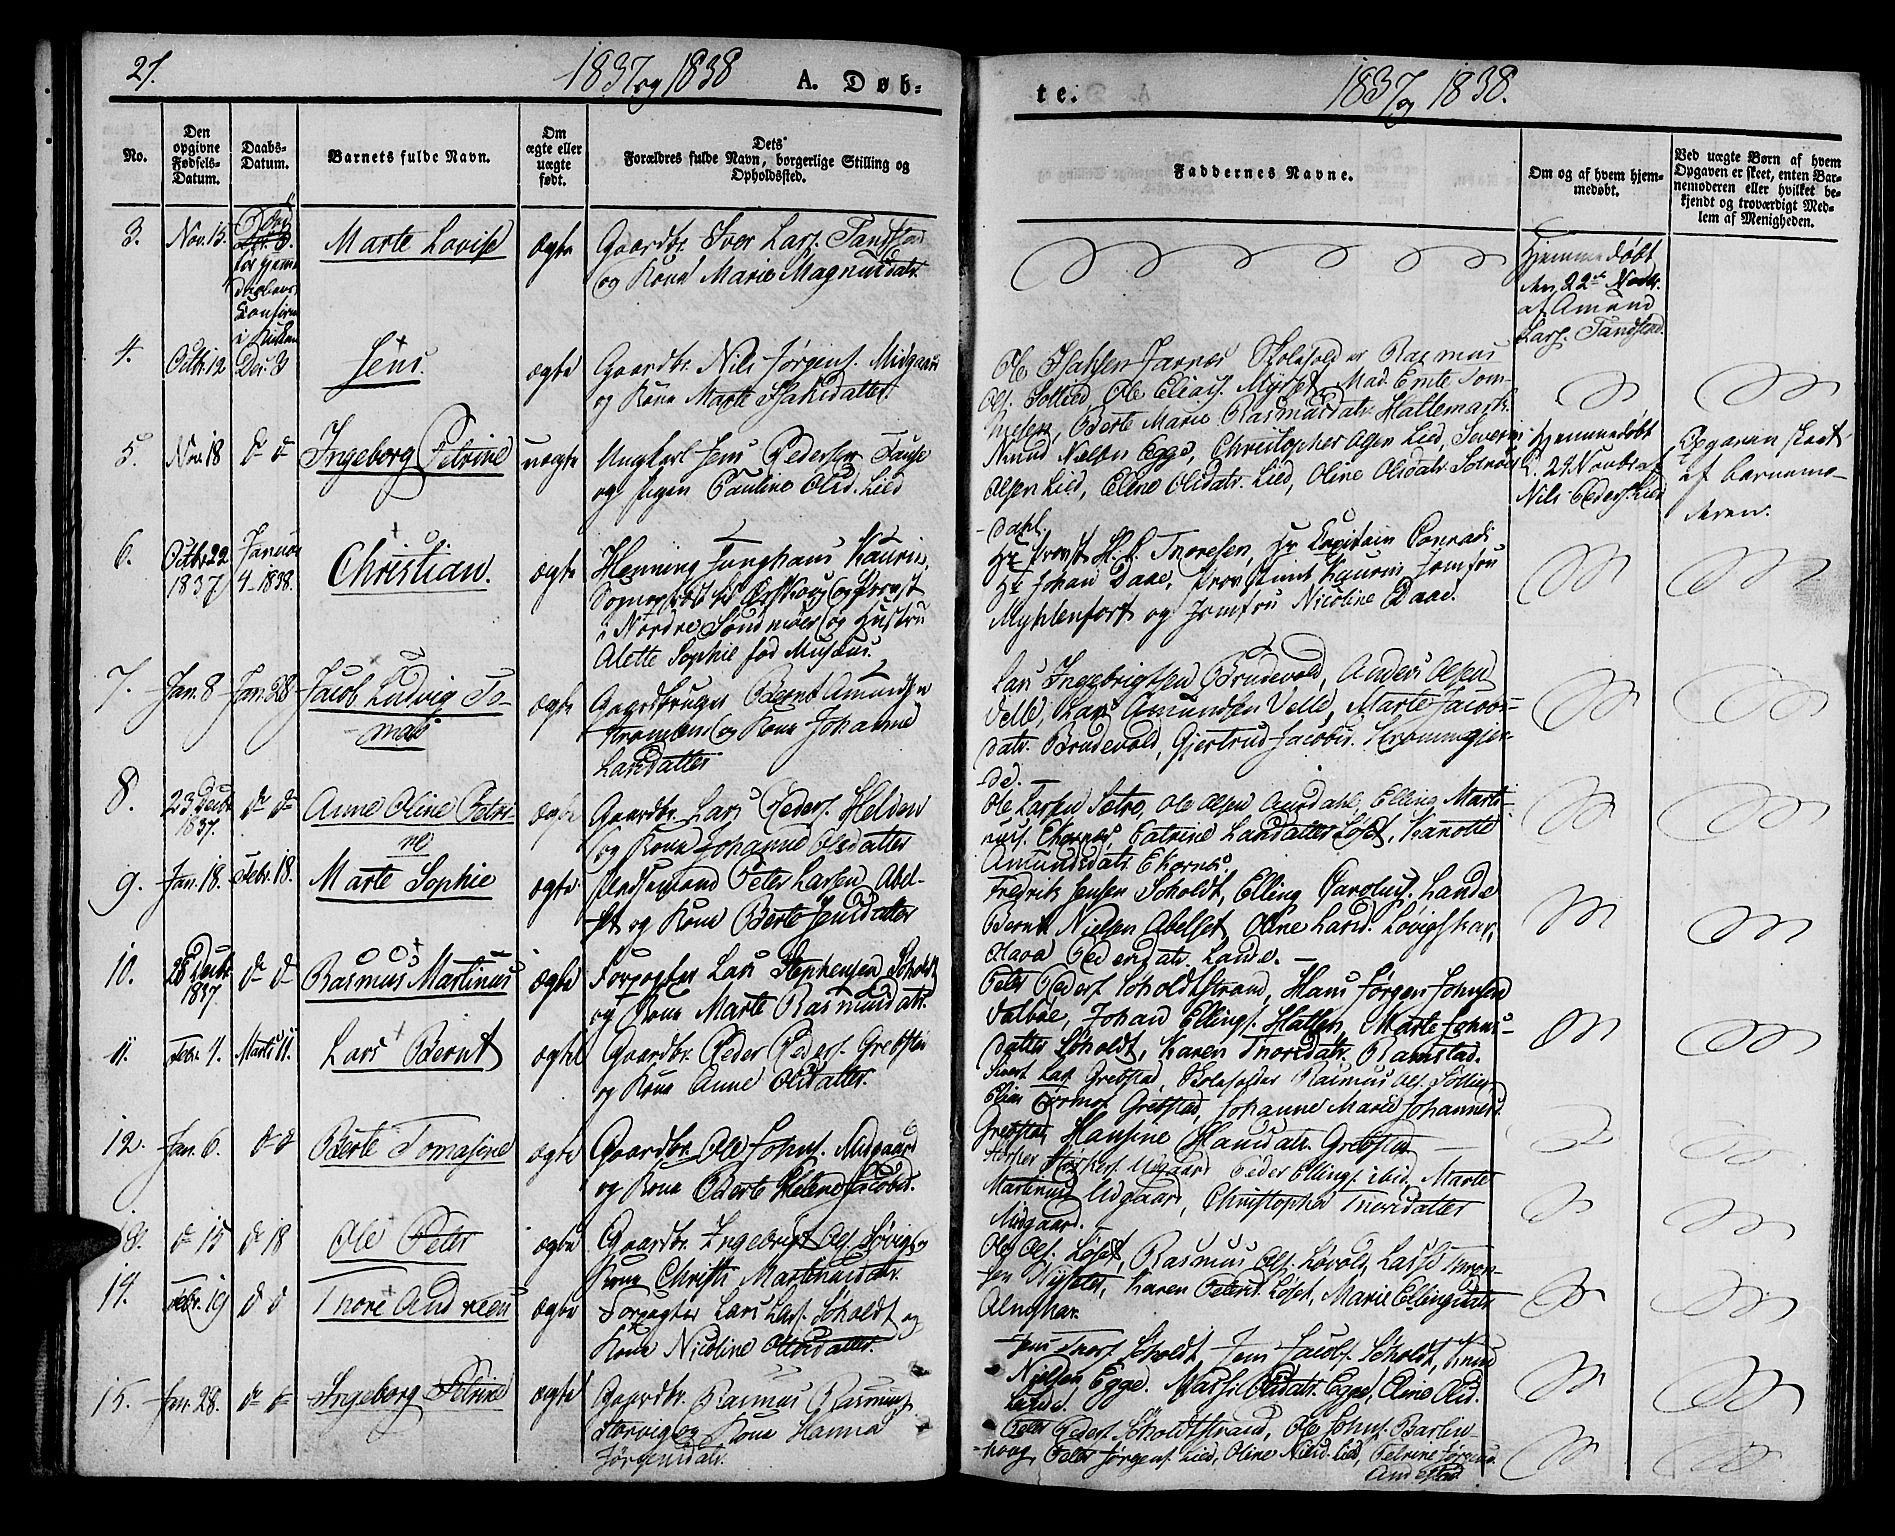 21.
1837 og 1838
A. Døb-
te.
1837 og 1838.
No.
Den opgivne Fødsels-Datum.
Daabs-Datum.
Barnets fulde Navn.
Om ægte eller uægte født.
Dets Forældres fulde Navn, borgerlige Stilling og Opholdssted.
Faddernes Navne.
Om og af hvem hjem-
medøbt.
Ved uægte Børn af hvem
Opgaven er skeet, enten Bar-
nemoderen eller hvilket be-
kjendt og troværdigt Med-
lem af Menigheden.
3. Nov. 15. Marte Lovise ægte Gaardbr. Iver Lars. Tandstad
og Kone Marie Magnusdatr.
Hjemmedøbt
den 22de Novbr.
af Amund
Lars. Tandstad
4. Octbr. 12 Dec. 3 Jens. ægte Gaardbr. Nils Jørgens. Midgaard
og Kone Marte Isaksdatter.
Ole Isaksen Skoleholder Rasmus
Ols. Sollied Ole Elias. Myhset, Mad. Emte Tom-
Berte Marie Rasmusdatr. Hattemark.
5. Nov. 18 d d Ingeborg Petrine uægte Ungkarl Jens Pedersen Tause
og pigen Pauline Olsd. Lied
Knud Nielsen Egge, Christopher Olsen Lied, Severin
Olsen Lied, Eline Olsdatr. Lied, Oline Olsdatr. Solnør-
dahl.
Hjemmedøbt
d. 29 Novbr. af
Nils Peders. Lied
Opgaven skeet
af Barnemo-
deren.
6. Octbr. 22
1837 Januar
4. 1838. Christian. ægte Henning Junghans Kaurin,
Sognepræst til Ørskoug og Provst
i Nordre Søndmør og Hustru
Alette Sophie fød Musæus.
Hr. Provst H. C. Thoresen, Hr. Capitain Conradi
Hr. Johan Daae, Provstinde Kaurin Jomfru
Myhlenfort og Jomfru Nicoline Daae.
7. Jan. 8 Jan. 28 Jacob Ludvig To-
mas ægte Gaardbruger Bernt Amundsen
Strømmen og Kone Johanne
Larsdatter
Lars Ingebrigtsen Brudevold, Anders Olsen
Velle, Lars Amundsen Velle, Marte Jacobs-
datr. Brudevold, Gjertrud Jacobsd. Strømmegjer-
de.
8. 23 Decbr.
1837. d d Anne Oline Petri-
ne ægte Gaardbr. Lars Peders. Helden
og Kone Johanne Olsdatter
Ole Larsen Sætre, Ole Olsen Aursdahl, Elling Marti-
nus. Ekornes, Catrine Larsdatter Løset, Karoline
Amundsdatr. Ekornes.
9. Jan. 18. Febr. 18. Marte Sophie ægte Pladsemand Peter Larsen Abel-
set og Kone Berte Jensdatter
Fredrik Jensen Scholdt, Elling Carolus. Lande
Bernt Nielsen Abelset, Oline Larsd. Løvigskar,
Maria Pedersdatr. Lande.
10. 28 Decbr.
1837. d d Rasmus Martinus ægte Forpagter Lars Stephensen Scholdt
og Kone Marte Rasmusdatr.
Peter Peders. Scholdtstrand, Hans Jørgen Johnsen
Johan Ellings. Hatlen, Marte Johns-
datter Scholdt, Karen Thoresdatr. Ramstad.
11. Febr. 4. Marts 11. Lars Bernt ægte Gaardbr. Peder Peders. Grebstad
og Kone Anne Olsdatter.
Sivert Lars. Grebstad, Skoleholder Rasmus Ols. Sollied
Elias Grebstad, Johanne Marie Johannesd.
Grebstad Hansine Hansdatr. Grebstad
12. Jan. 6. d d Berte Tomasine ægte Gaardbr. Ole Johns. Midgaard
og Kone Berte Helene Jacobsd.
Peder Ellings. ibid, Marte
Martinusd. Midgaard, Christophe Thoresdatter
Midgaard.
13. d 15 d 18 Ole Peter ægte Gaardbr. Ingebrigt Ols. Løvig og
Kone Christi Martinusdatr.
Ole Ols. Løset, Rasmus Ols. Løvold, Lasse Iver-
sen Karen Petersd. Løset, Marie Ellingsdatr.
14. Febr. 19 d d Thore Andreas ægte Forpagter Lars Lars. Scholdt og
Kone Nicoline Olsdatter.
Jens Thors. Scholdt Jens Jacobs. Scholdt, Knud
Nielsen Egge. Massi Olsdatr. Egge, Eline Olsd.
15. Jan. 28. d d Ingeborg Petrine ægte Gaardbr. Rasmus Rasmus.
Storvig og Kone Hanna
Jørgensdatr.
Peter Peders. Scholdtstrand, Ole Johns. Barlin-
hoog, Peter Jørgens. Lied, Oline Nilsd. Lied, Petrine Jørgens.